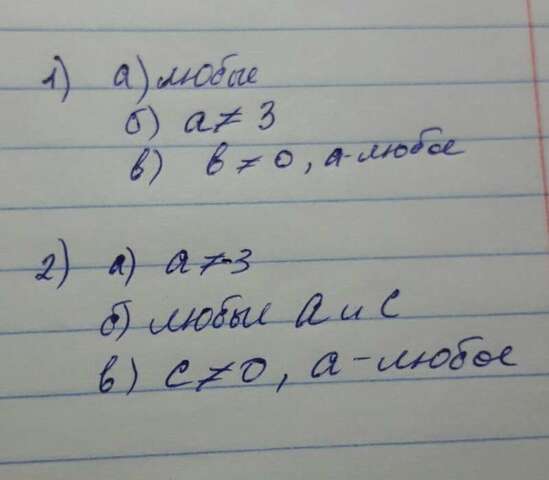 1) а) любые
б) а ≠ 3
в) в ≠ 0, а-любое
2) а) а ≠ -3
б) любые а и с
в) с ≠ 0, а - любое